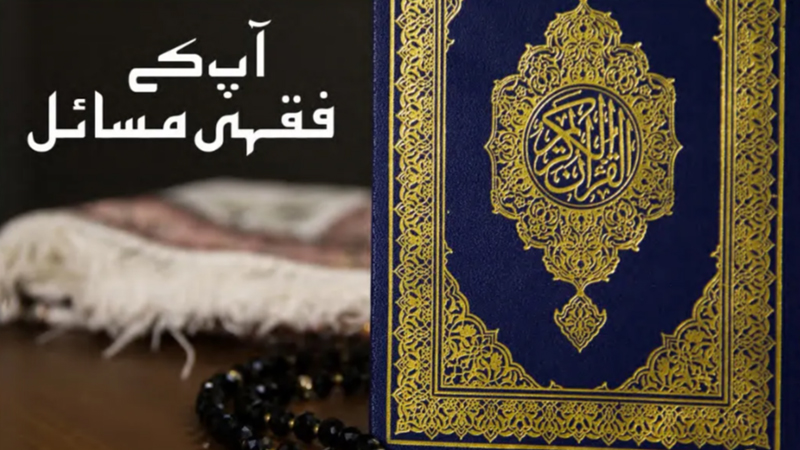 آپ کے
فقہی مسائل
القرآن الكريم